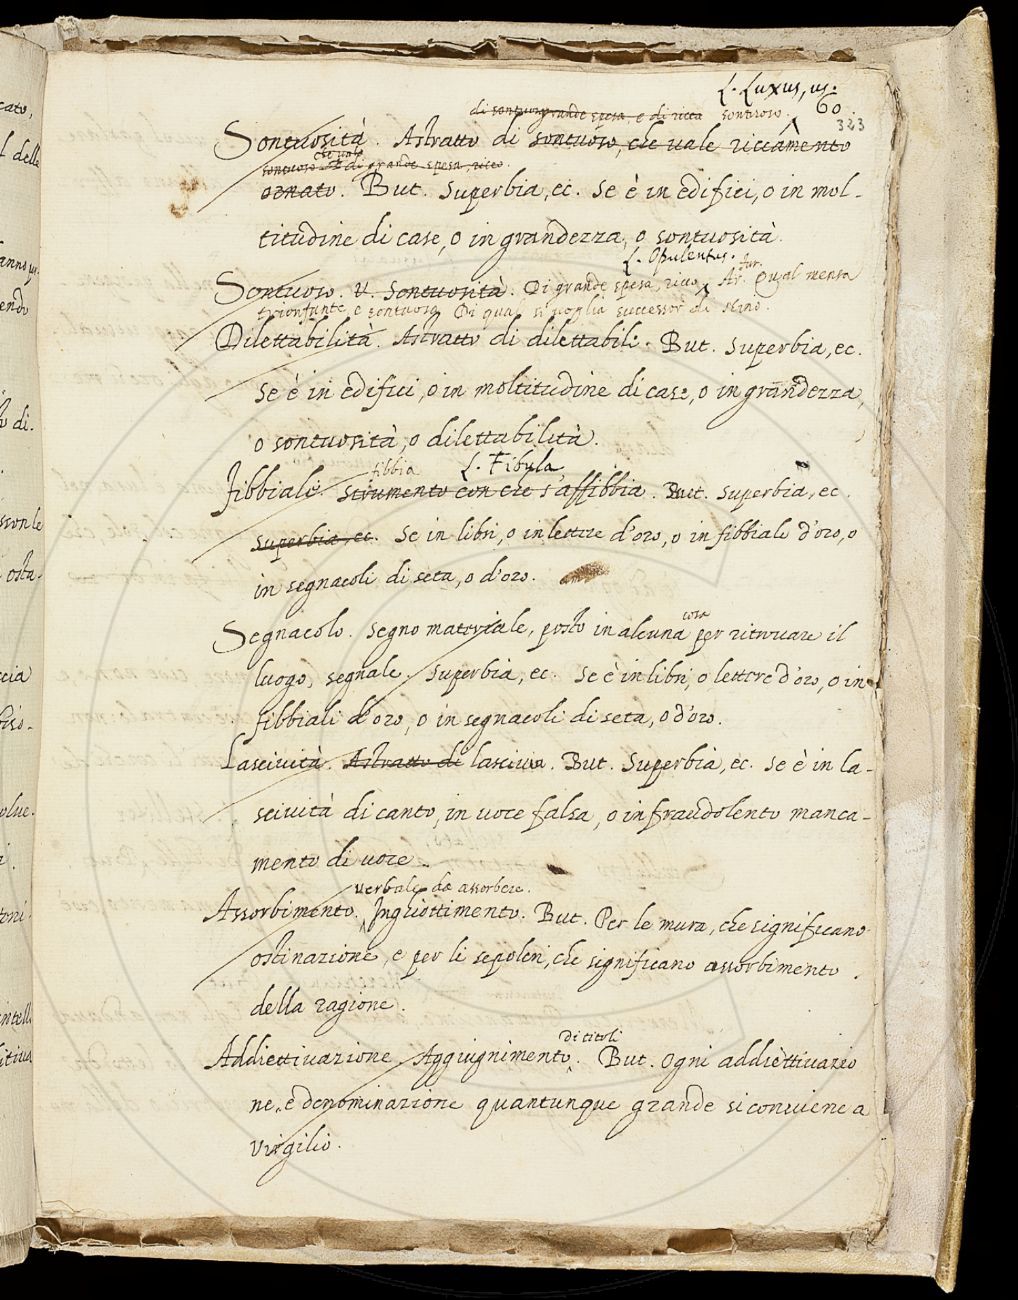 L. Luxus, us.
60
323
di sontuoso grande spesa e di ricca sontuoso.
Sontuosità. Astratto di sontuoso, che vale riccamento
che vale
sontuoso di grande spesa, ricco.
ornato. But. Superbia, ec. Se è in edifici, o in mol-
titudine di case, o in grandezza, o sontuosità.
L. Opulentus.
Sontuoso. V. Sontuosità. Di grande spesa, ricco. Ar. Fur. Qual mensa
trionfante e sontuosa Di qual si voglia successor di Nino.
Dilettabilità. Astratto di dilettabile. But. Superbia, ec.
Se è in edifici, o in moltitudine di case, o in grandezza,
o sontuosità, o dilettabilità.
fibbia L. Fibula,
Fibbiale. Strumento con che s'affibbia. But. Superbia, ec.
Superbia, ec. Se in libri, o in lettere d'oro, o in fibbiale d'oro, o
in segnacoli di seta, o d'oro.
cosa
Segnacolo. Segno materiale, posto in alcuna per ritrovare il
luogo, segnale. Superbia, ec. Se è in libri, o lettere d'oro, o in
fibbiali d'oro, o in segnacoli di seta, o d'oro.
Lascività. Astratto di lasciva. But. Superbia, ec. Se è in la-
scività di canto, in voce falsa, o in fraudolento manca-
mento di voce.
verbale da assorbere.
Assorbimento. Inghiottimento. But. Per le mura, che significano
ostinazione, e per li sepolcri, che significano assorbimento
della ragione.
di titoli
Addiettivazione Aggiugnimento. But. Ogni addiettivazio
ne, e denominazione quantunque grande si conviene a
Virgilio.